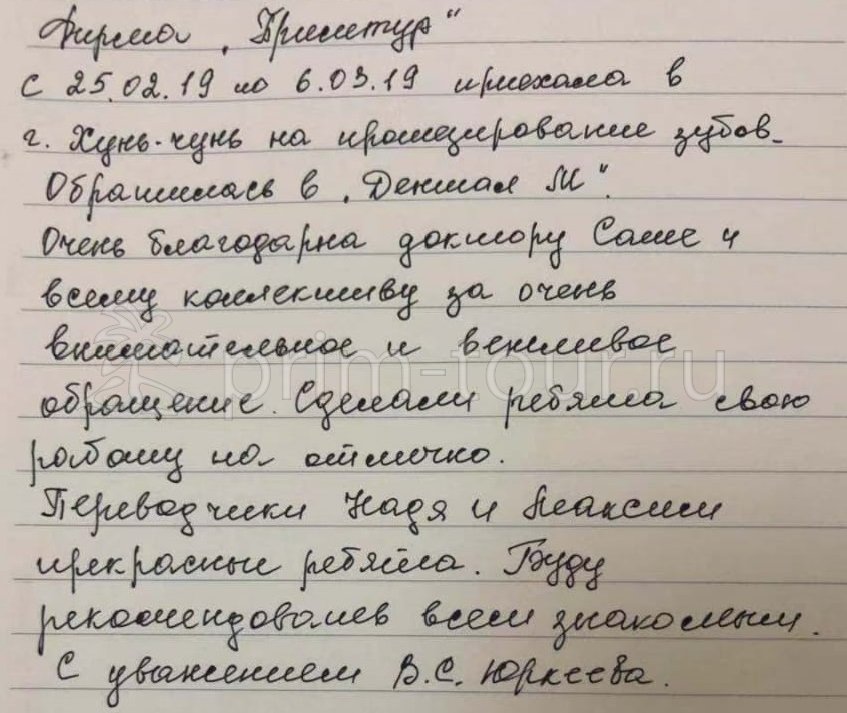 Фирма „Примтур“
с 25.02.19 по 6.03.19 приехала в
г. Хунь-чунь на протезирование зубов.
Обратилась в „Дентал М“.
Очень благодарна доктору Саше и
всему коллективу за очень
внимательное и вежливое
обращение. Сделали ребята свою
работу на отлично.
Переводчики Надя и Максим
прекрасные ребята. Буду
рекомендовать всем знакомым.
С уважением В.С. Юркеева.
prim-tour.ru